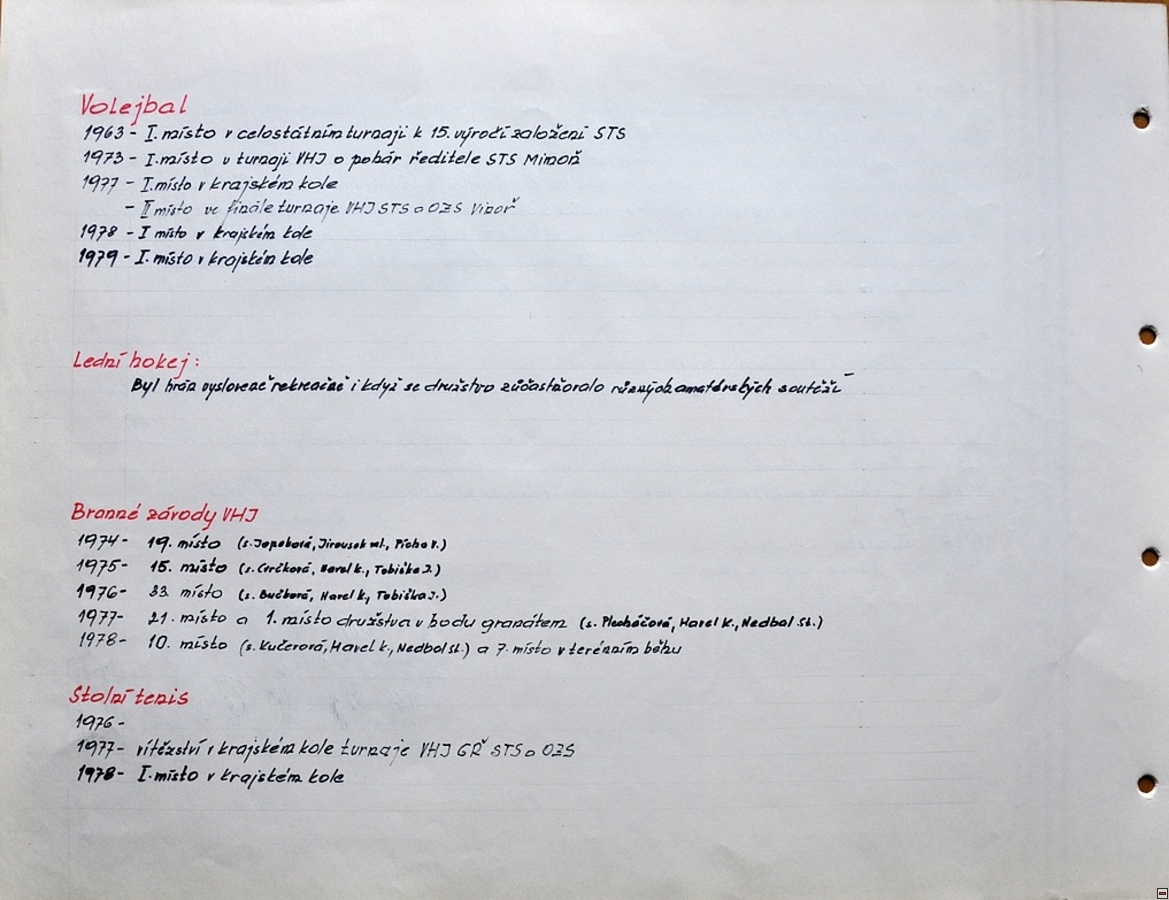 Volejbal
1963 - I. místo v celostátním turnaji k 15. výročí založení STS
1973 - I. místo v turnaji VHJ o pohár ředitele STS Mimoň
1977 - I. místo v krajském kole
- II místo ve finále turnaje VHJ STS a OZS
1978 - I místo v krajském kole
1979 - I. místo v krajském kole
Lední hokej:
Byl hrán vysloveně rekreačně i když se družstvo zúčastňovalo různých amatérských soutěží
Branné závody VHJ
1974 - 19. místo (s. Jirousek ml., Pícha V.)
1975 - 15. místo (s. Havel k., Tobiška J.)
1976 - 33 místo (s. Bučková, Havel k, Tobiška J.)
1977 - 21. místo a 1. místo družstva v hodu granátem (s. Plecháčová, Havel K., Nedbol St.)
1978 - 10. místo (s. Kučerová, Havel k, Nedbol st.) a 7. místo v terénním běhu
Stolní tenis
1976 -
1977 - vítězství v krajském kole turnaje VHJ GŘ STS a OZS
1978 - I. místo v krajském kole